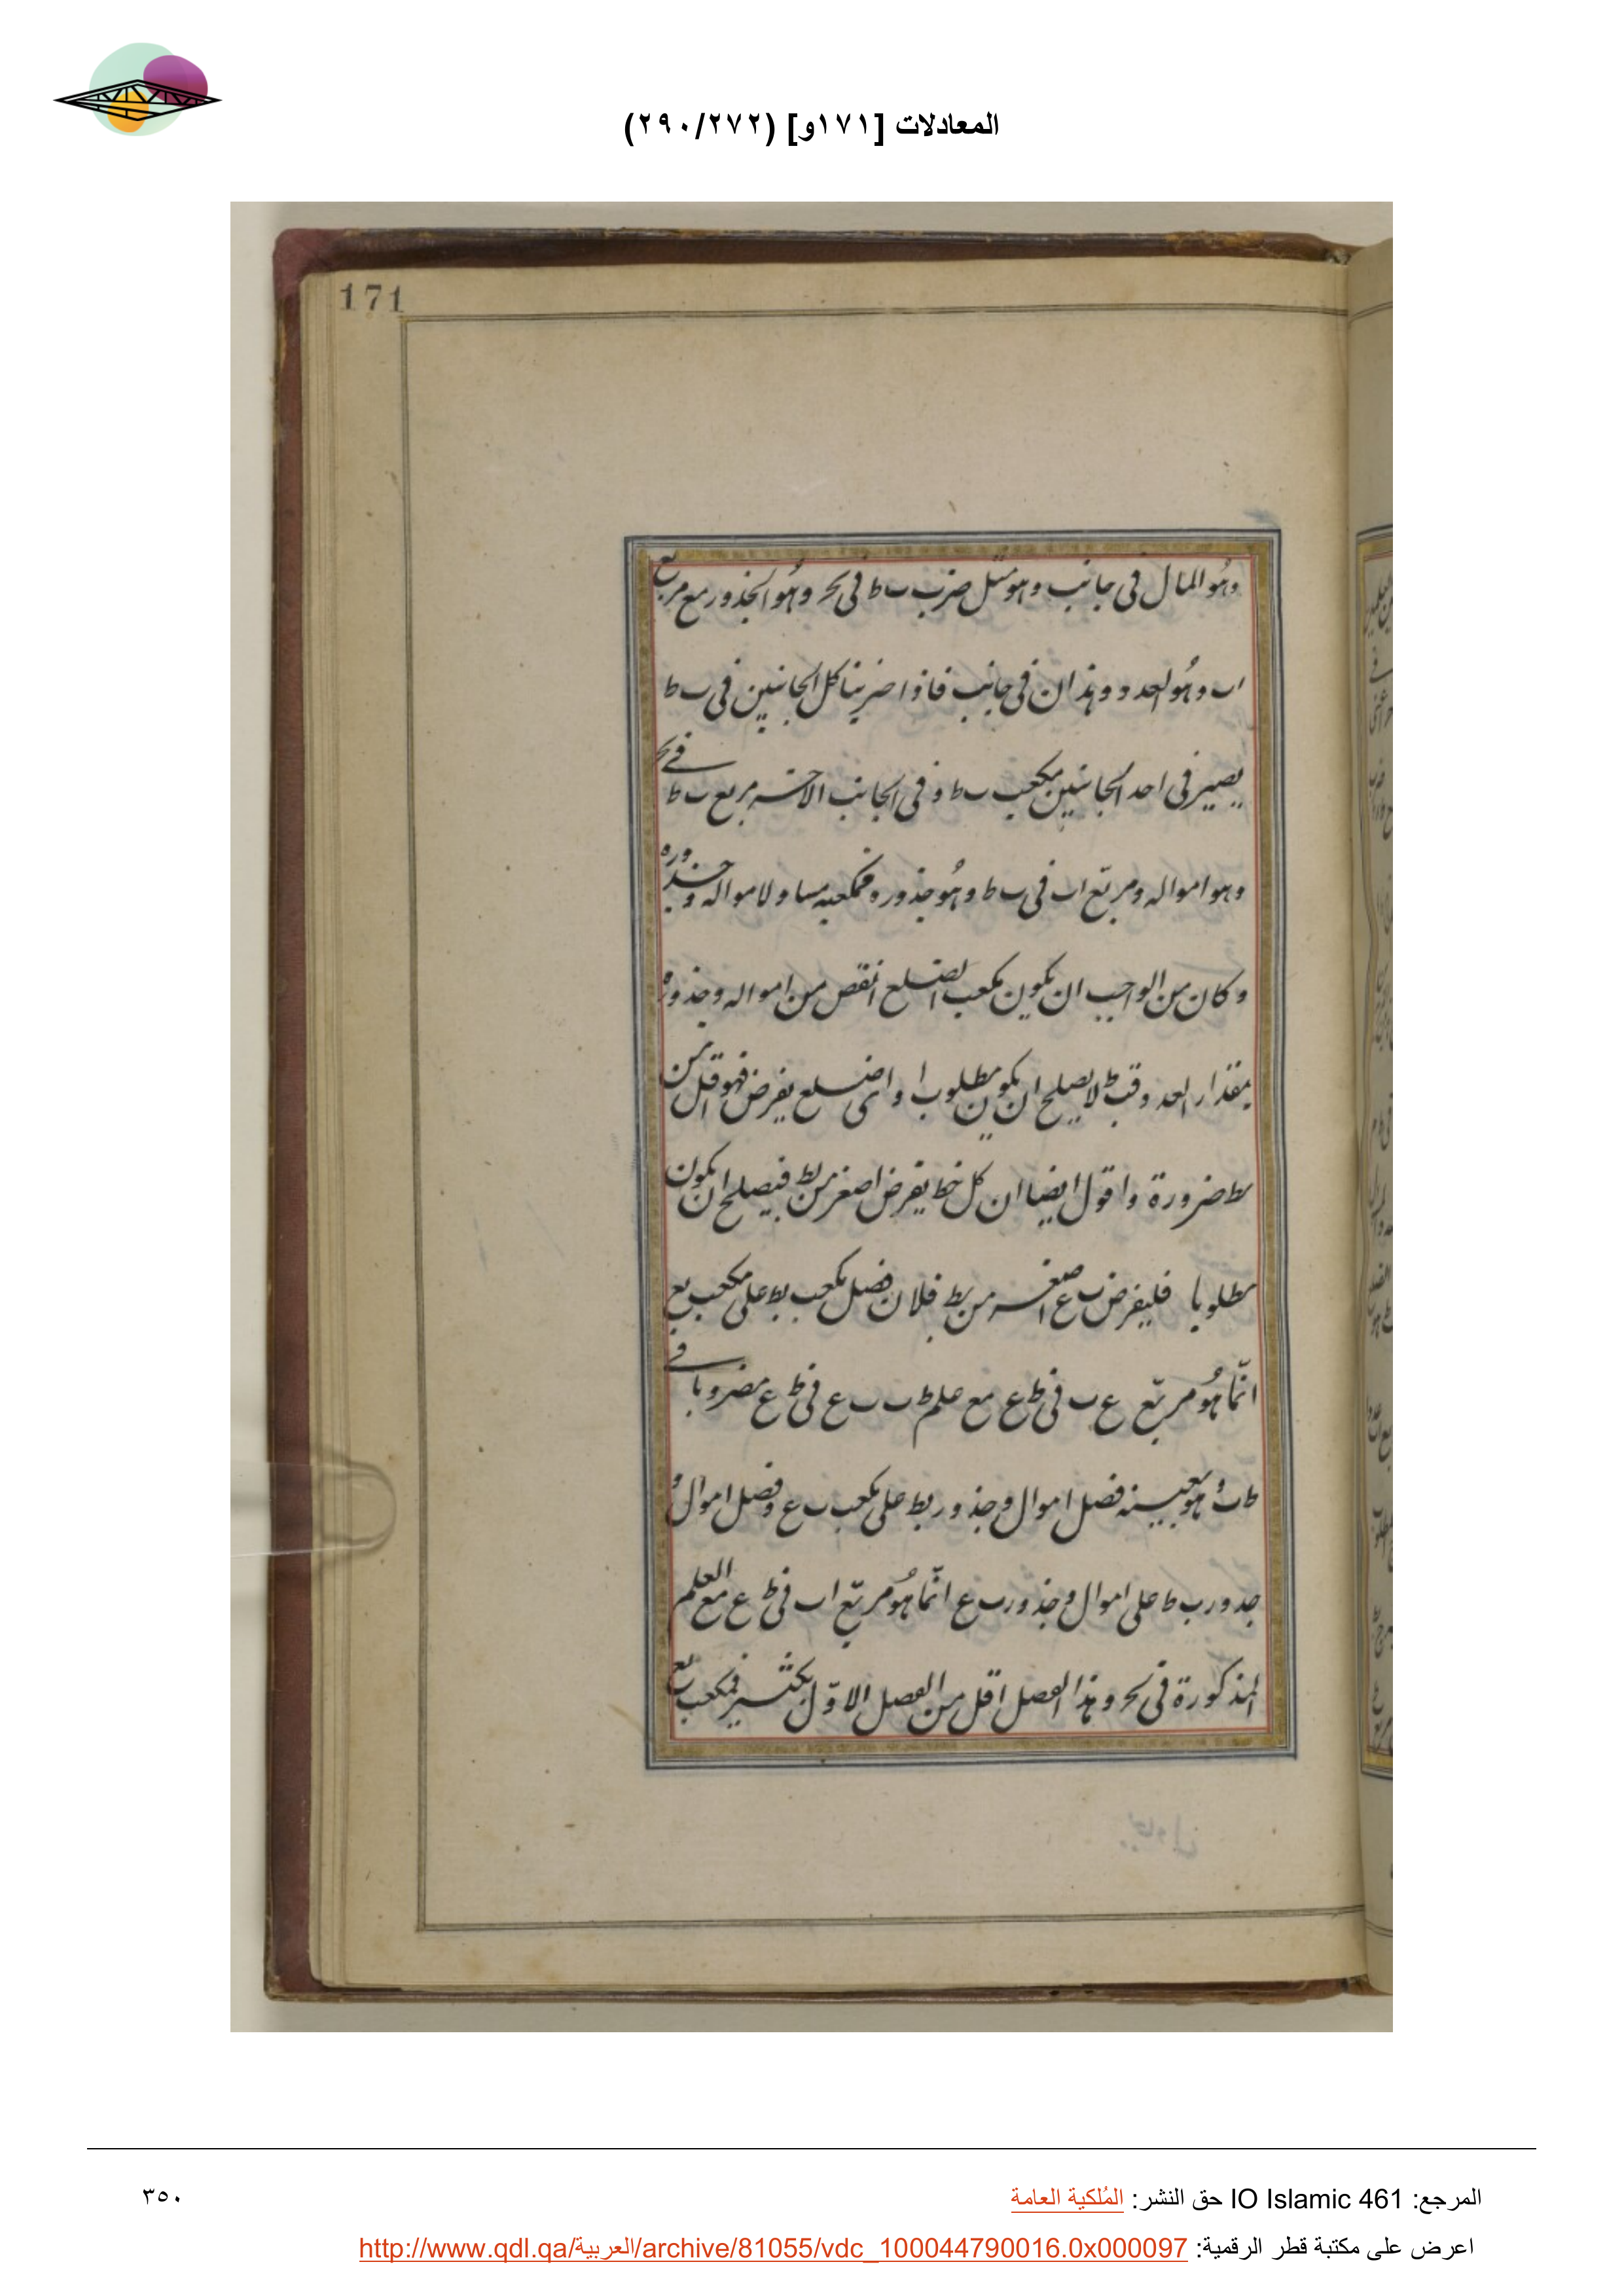 المعادلات [١٧١و] (٢٩٠/٢٧٢)
171
وهو المال فى جانب وهو مثل ضرب ب ط فى ب ح وهو الجذور مع مربع
اب وهو العدد وهذان فى جانب فاذا ضربنا كل الجانبين فى ب ط
يصير فى احد الجانبين مكعب ب ط وفى الجانب الاخر مربع ب ط فى ب ح
وهو امواله ومربّع اب فى ب ط وهو جذوره فمكعبه مساو لامواله وجذوره
وكان من الواجب ان يكون مكعب الضلع انقص من امواله وجذوره
بمقدار العدد فب ط لا يصلح ان يكون مطلوبا واى ضلع يفرض فهو اقل من
بط ضرورة واقول ايضا ان كل خط يفرض اصغر من بط فيصلح ان يكون
مطلوبا فليفرض ب ع اصغر من بط فلان فضل مكعب بط على مكعب بع
انّما هو مربّع ع ب فى ط ع مع علم ط ب ب ع فى ط ع مضروبا فى
ط ب وهو بعينه فضل اموال وجذور بط على مكعب ب ع وفضل اموال و
جذور ب ط على اموال وجذور ب ع انّما هو مربّع اب فى ط ع مع العلم
المذكورة فى ب ح وهذا الفصل اقل من الفصل الاوّل بكثير فمكعب بع
المرجع: IO Islamic 461 حق النشر: المُلكية العامة
٣٥٠
اعرض على مكتبة قطر الرقمية: http://www.qdl.qa/العربية/archive/81055/vdc_100044790016.0x000097